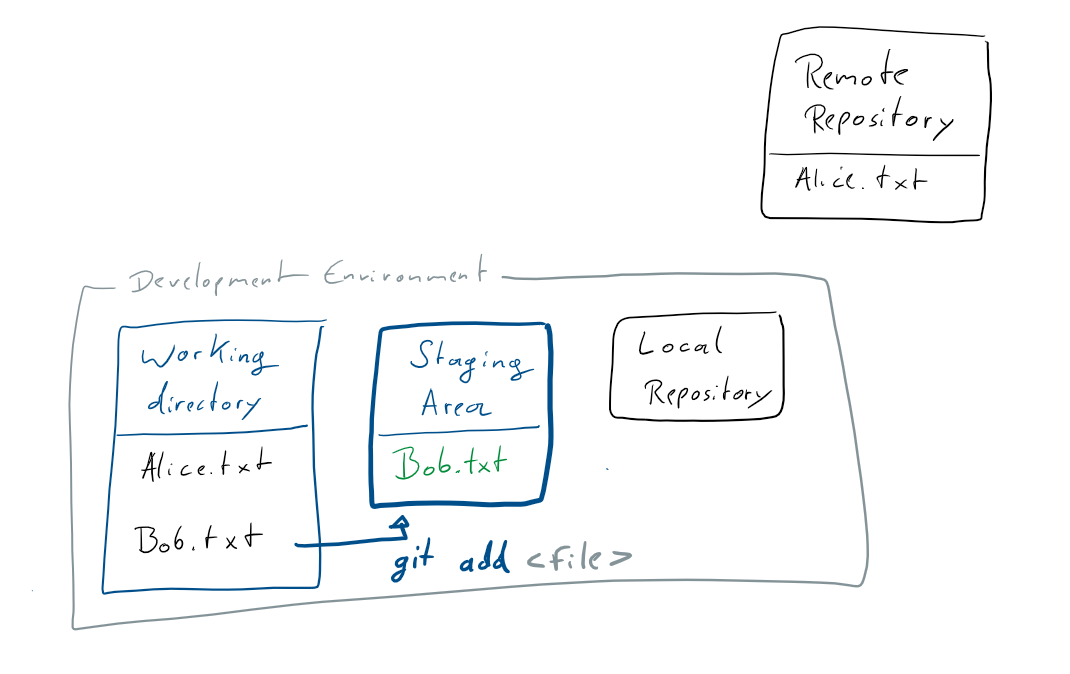 Remote
Repository
Alice.txt
Development Environment
Working
directory
Alice.txt
Bob.txt
Staging
Area
Bob.txt
git add <file>
Local
Repository